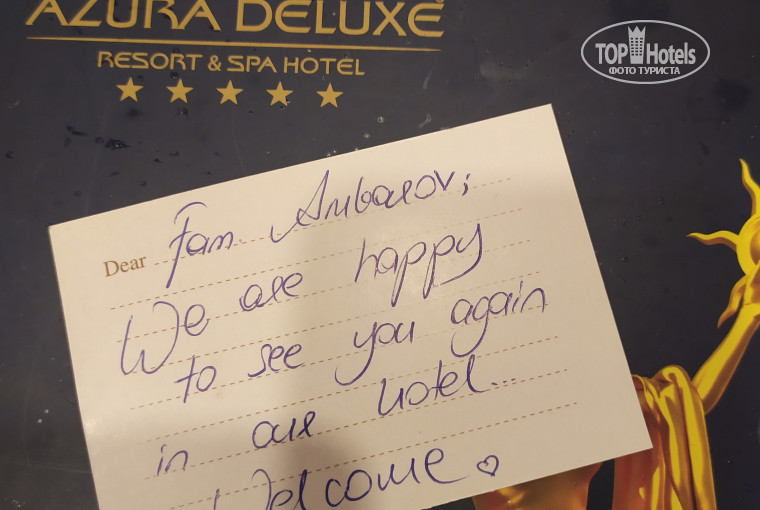 AZURA DELUXE
RESORT & SPA HOTEL
TOP Hotels
ФОТО ТУРИСТА
Dear Fam. Ambarov;
We are happy
to see you again
in our hotel...
Welcome